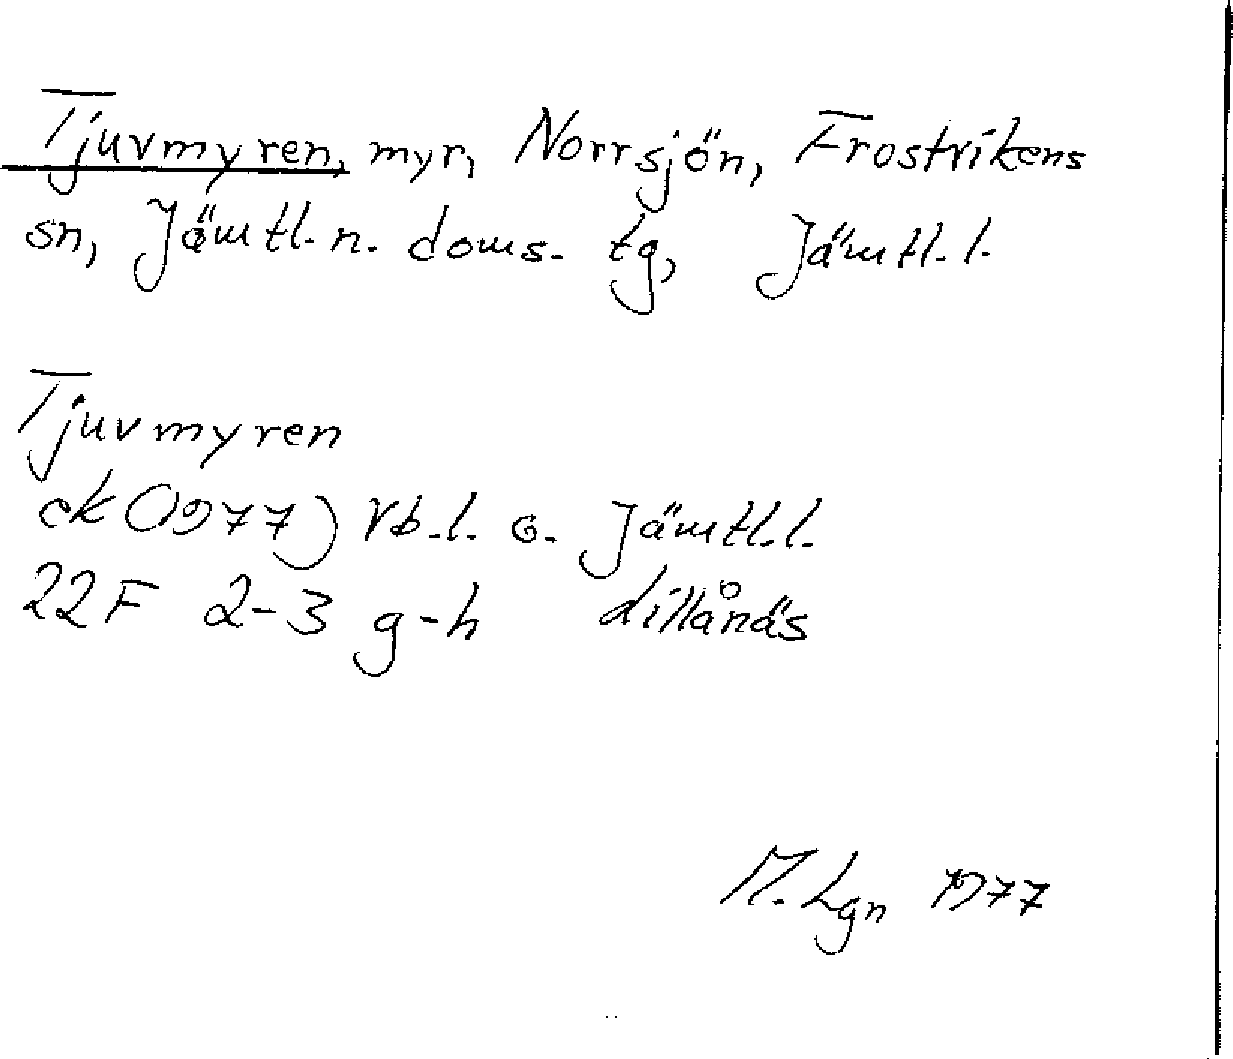 Tjuvmyren, myr, Norrsjön, Frostvikens
sn, Jämtl. n. doms. tg, Jämtl. l.
Tjuvmyren
ek (1977) Vb. l. o. Jämtl. l.
22F 2-3 g-h dillånäs
M. Lgn 1977